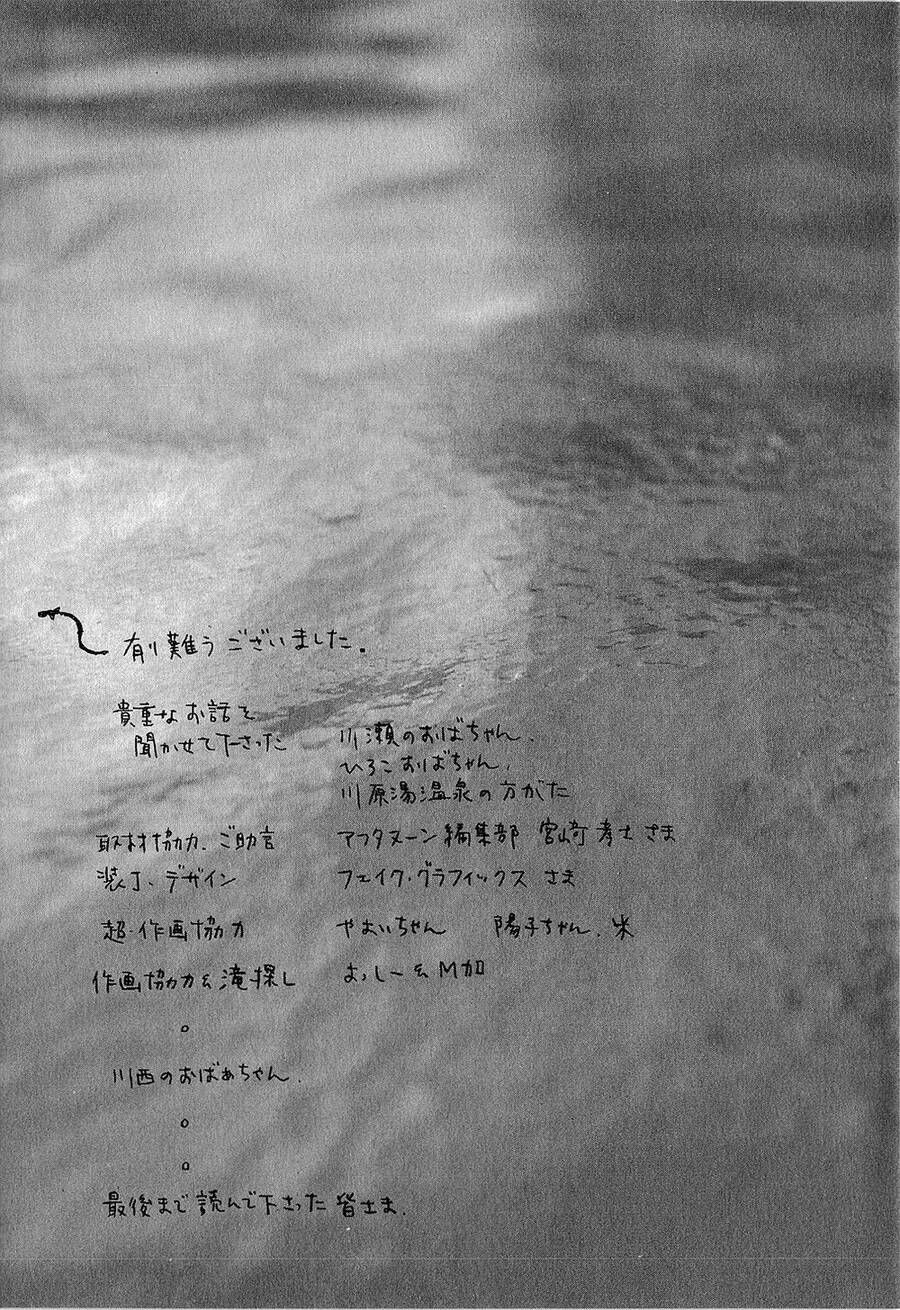 有り難うございました。
貴重なお話を
聞かせて下さった
川瀬のおばちゃん、
ひろこおばちゃん、
川原湯温泉の方がた
取材協力、ご助言 アフタヌーン編集部 宮崎孝士さま
装丁、デザイン フェイク・グラフィックス さま
超・作画協力 やよいちゃん 陽子ちゃん、米
作画協力&滝探し よっしー& M加
川西のおばぁちゃん、
最後まで読んで下さった皆さま、